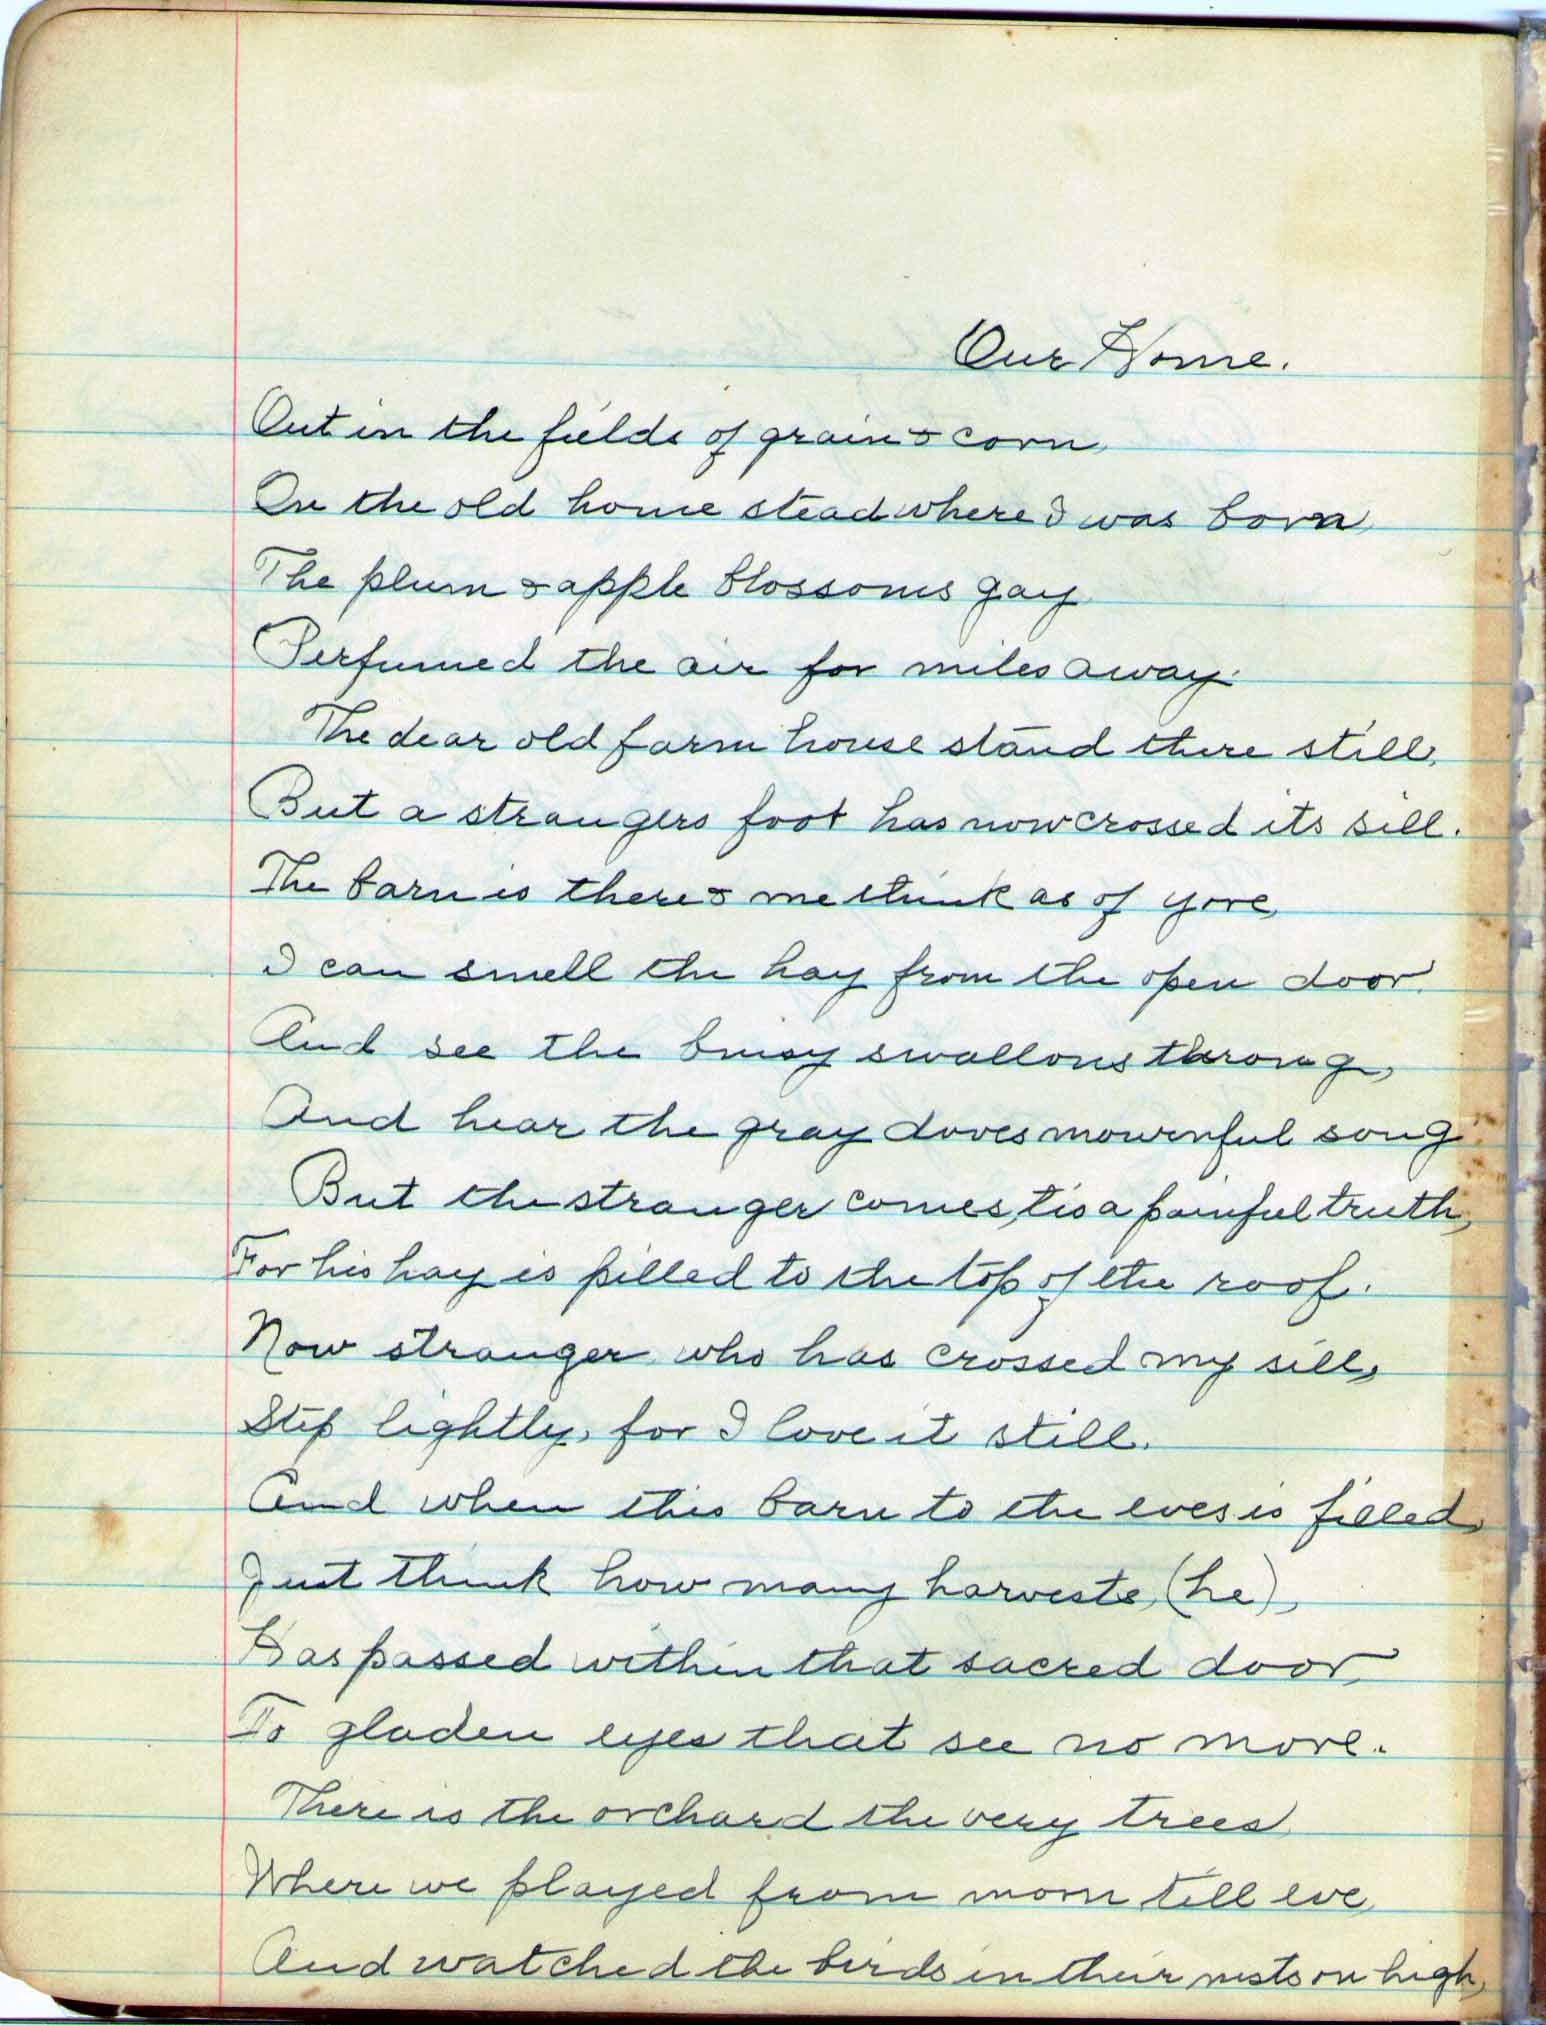 Our Home.
Out in the fields of grain & corn,
On the old home stead where I was born,
The plum & apple blossoms gay
Perfumed the air for miles away.
The dear old farm house stand there still,
But a strangers foot has now crossed its sill.
The barn is there & me think as of yore,
I can smell the hay from the open door.
And see the busy swallows throng,
And hear the gray doves mournful song
But the stranger comes, tis a painful truth,
For his hay is pilled to the top of the roof.
Now stranger who has crossed my sill,
Step lightly, for I love it still.
And when this barn to the eves is filled,
Just think how many harvests, (he),
Has passed within that sacred door,
To gladen eyes that see no more.
There is the orchard the very trees
Where we played from morn till eve,
And watched the birds in their nests on high,